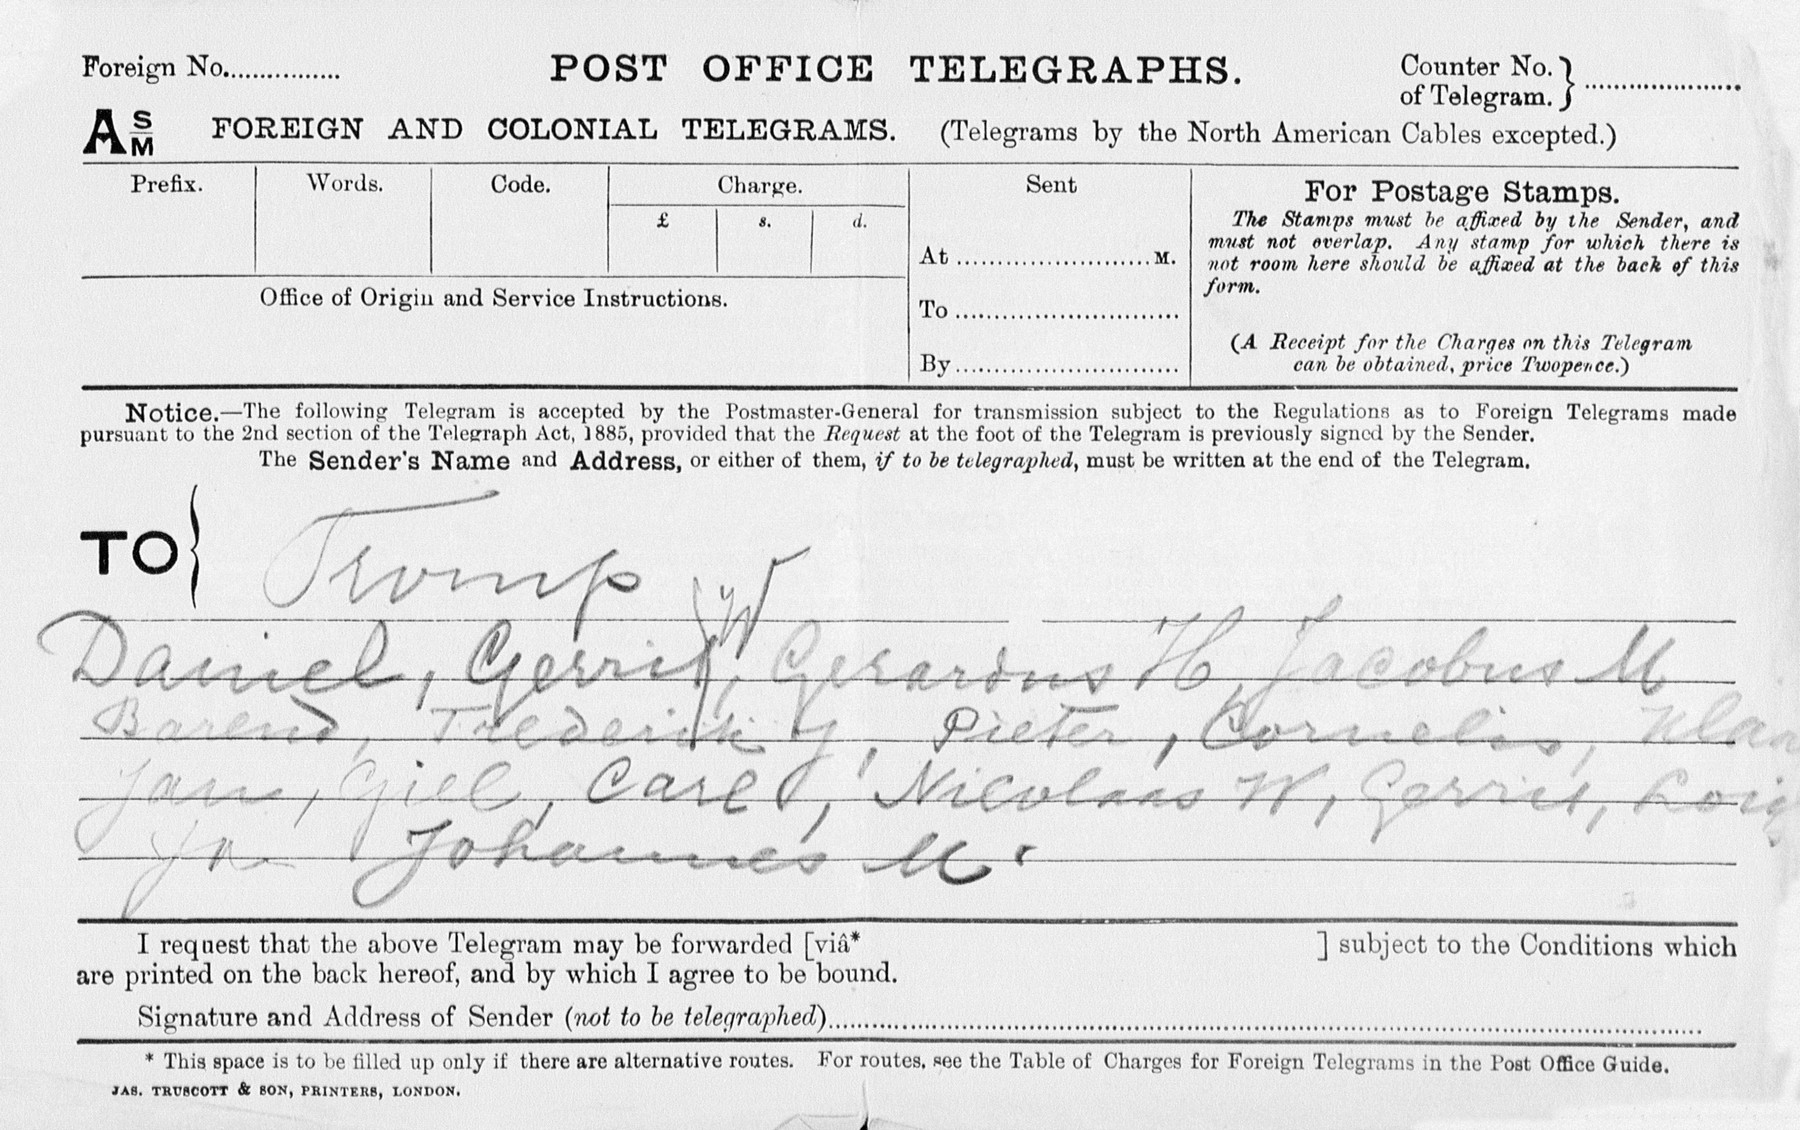 Foreign No................ POST OFFICE TELEGRAPHS. Counter No. of Telegram. } ......................
A S M FOREIGN AND COLONIAL TELEGRAMS. (Telegrams by the North American Cables excepted.)
Prefix. Words. Code. Charge. Sent For Postage Stamps.
£ s. d.
The Stamps must be affixed by the Sender, and
must not overlap. Any stamp for which there is
not room here should be affixed at the back of this
form.
At ......................... M.
To .............................
By .............................
Office of Origin and Service Instructions.
(A Receipt for the Charges on this Telegram
can be obtained, price Twopence.)
Notice.—The following Telegram is accepted by the Postmaster-General for transmission subject to the Regulations as to Foreign Telegrams made
pursuant to the 2nd section of the Telegraph Act, 1885, provided that the Request at the foot of the Telegram is previously signed by the Sender.
The Sender's Name and Address, or either of them, if to be telegraphed, must be written at the end of the Telegram.
TO { Tromp
Daniel, Gerrit W, Gerardus H, Jacobus M
Barend, Frederik Y, Pieter, Cornelis, Klaa
Jan, Giel, Carel, Nicolaas W, Gerrit,
Johannes M.
I request that the above Telegram may be forwarded [viâ* ] subject to the Conditions which
are printed on the back hereof, and by which I agree to be bound.
Signature and Address of Sender (not to be telegraphed)................................
* This space is to be filled up only if there are alternative routes. For routes, see the Table of Charges for Foreign Telegrams in the Post Office Guide.
JAS. TRUSCOTT & SON, PRINTERS, LONDON.